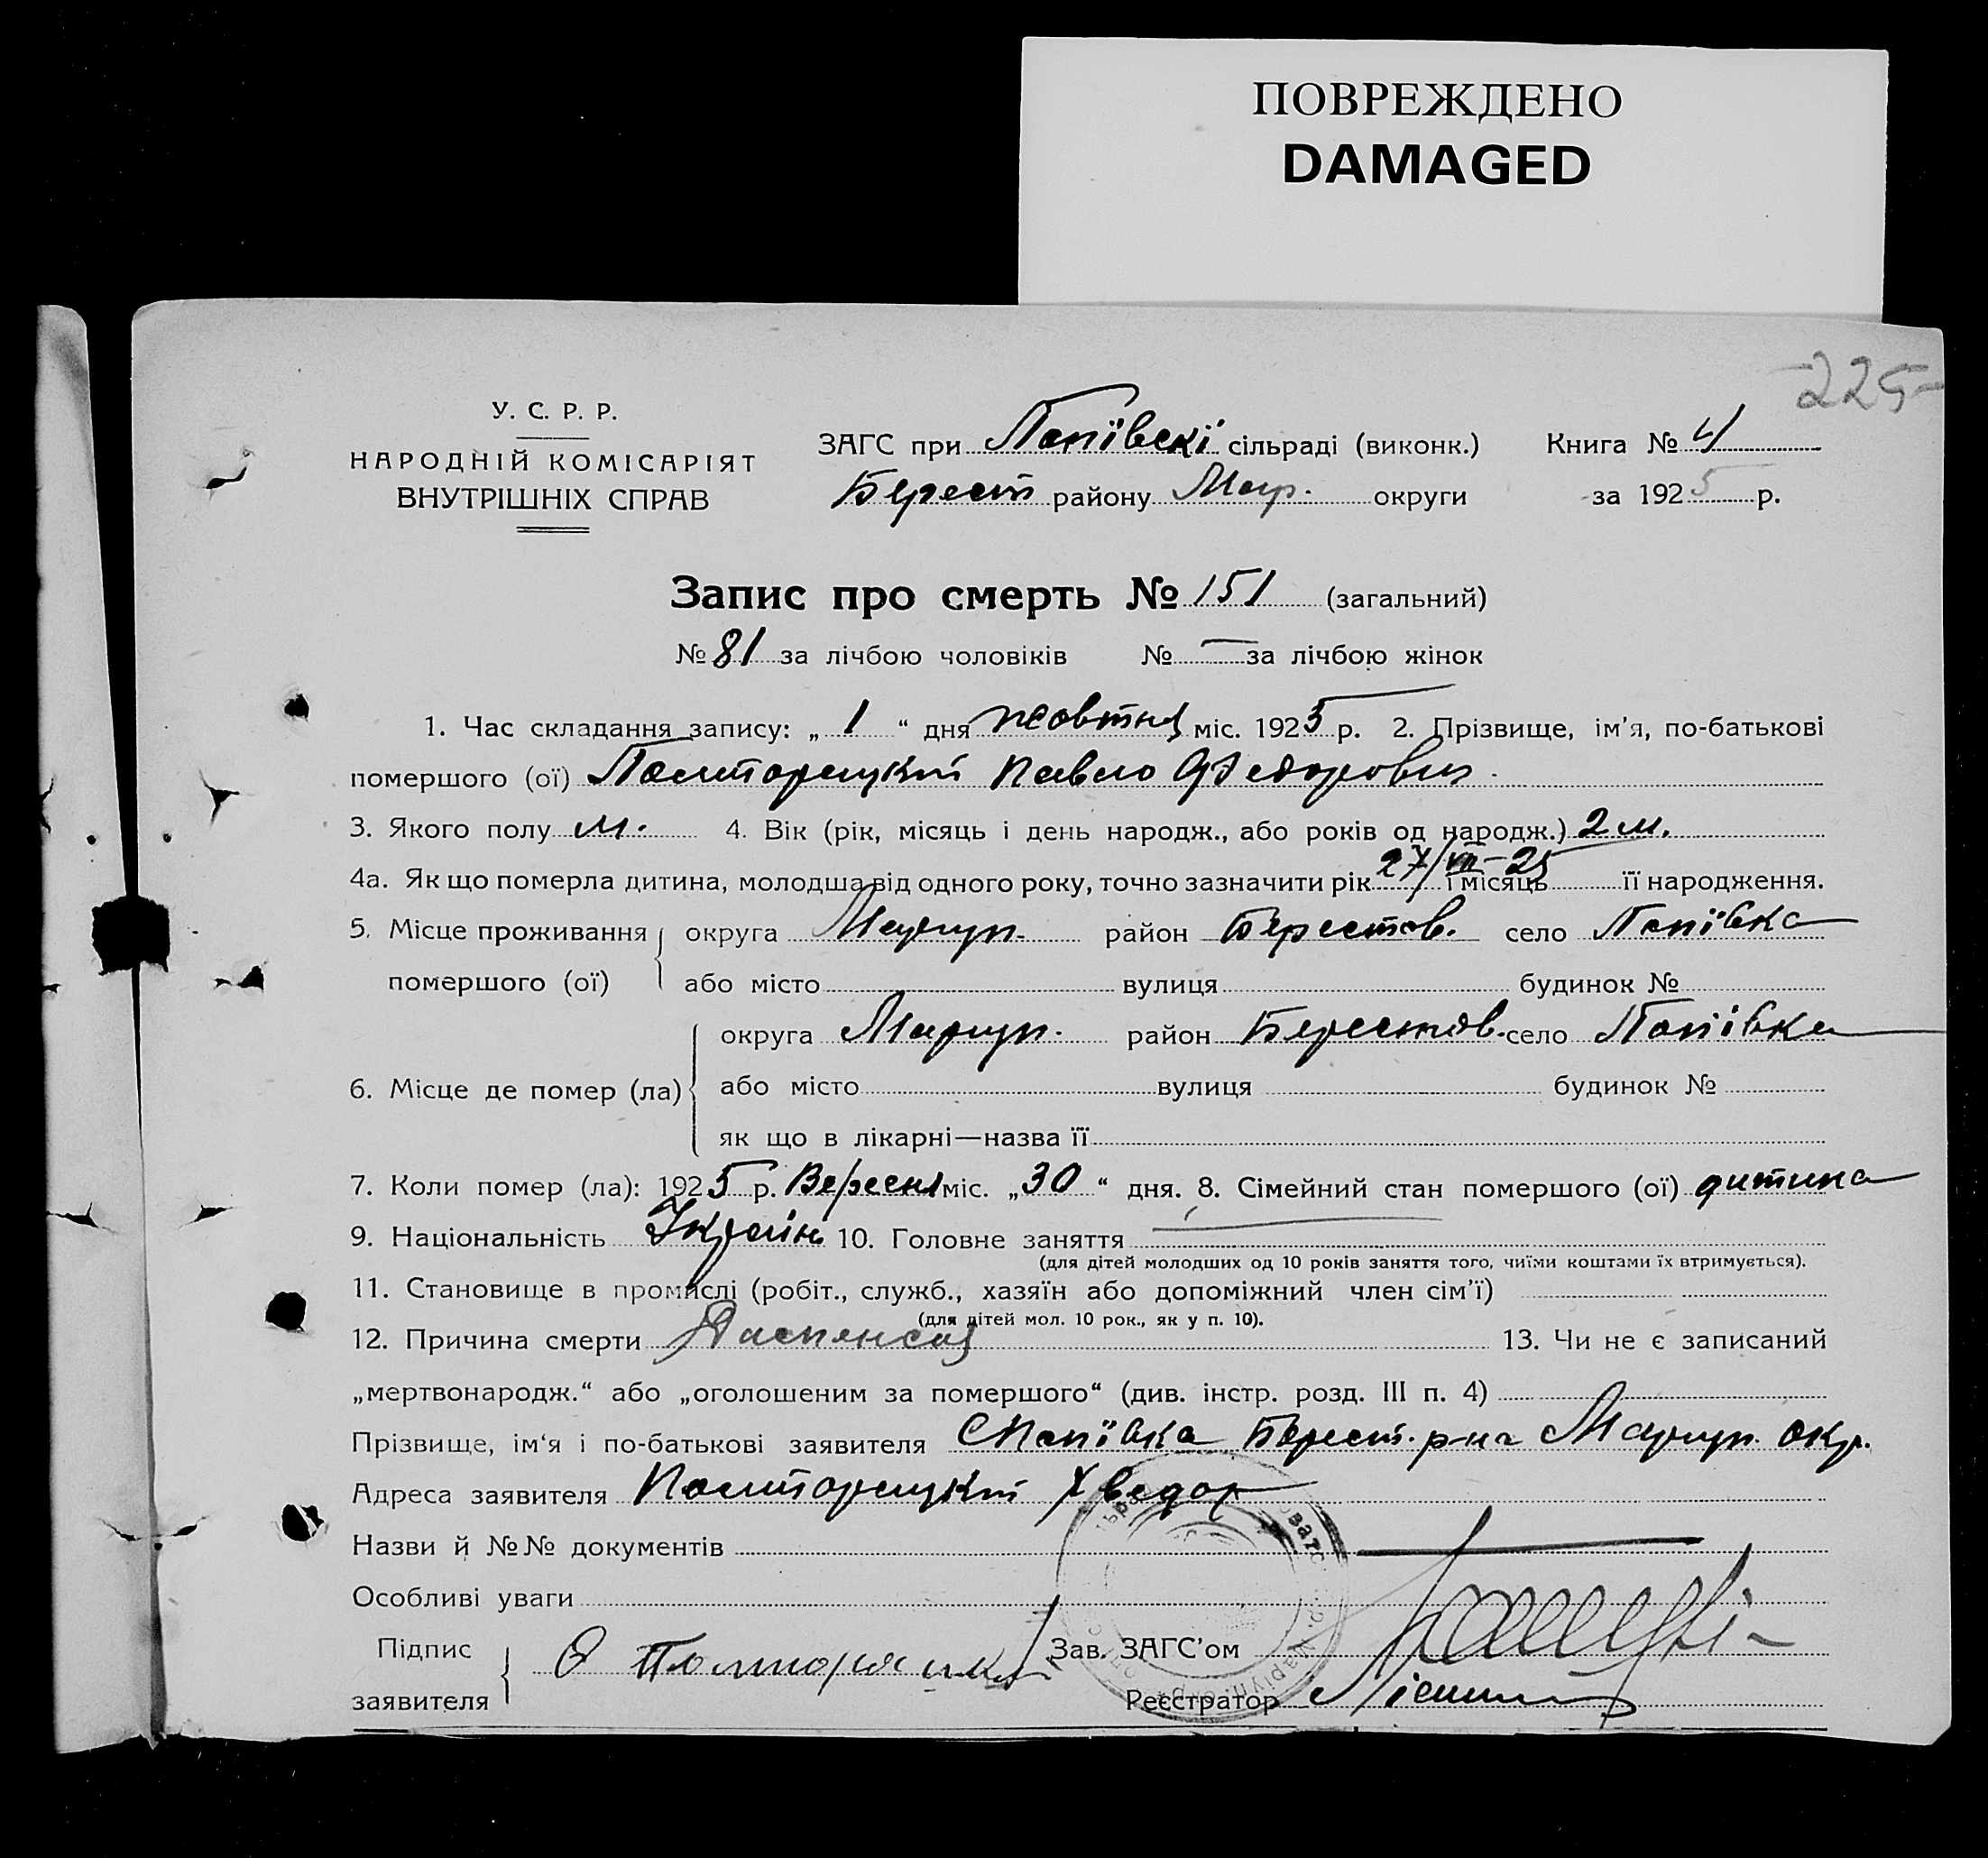 ПОВРЕЖДЕНО
DAMAGED
225
У. С. Р. Р.
НАРОДНІЙ КОМІСАРІЯТ
ВНУТРІШНІХ СПРАВ
ЗАГС при Попівскі сільраді (виконк.) Книга № 4
Берест району Мар. округи за 1925 р.
Запис про смерть № 151 (загальний)
№ 81 за лічбою чоловіків № — за лічбою жінок
1. Час складання запису: „ 1 “ дня жовтня міс. 1925 р. 2. Прізвище, ім'я, по-батькові
помершого (ої) Полторацкий Павло Федорович
3. Якого полу м. 4. Вік (рік, місяць і день народж., або років од народж.) 2 м.
4а. Як що померла дитина, молодша від одного року, точно зазначити рік 27/VII-25 і місяць її народження.
5. Місце проживання округа Маріуп. район Берестов. село Попівка
помершого (ої) або місто вулиця будинок №
округа Маріуп. район Берестов. село Попівка
6. Місце де помер (ла) або місто вулиця будинок №
як що в лікарні—назва її
7. Коли помер (ла): 1925 р. Вересня міс. „ 30 “ дня. 8. Сімейний стан помершого (ої) дитина
9. Національність Україн 10. Головне заняття
(для дітей молодших од 10 років заняття того, чиїми коштами їх втримується).
11. Становище в промислі (робіт., служб., хазяїн або допоміжний член сім'ї)
(для дітей мол. 10 рок., як у п. 10).
12. Причина смерти 13. Чи не є записаний
„мертвонародж.“ або „оголошеним за помершого“ (див. інстр. розд. III п. 4)
Прізвище, ім'я і по-батькові заявителя С Попівка Берест. р-на Маріуп. окр.
Адреса заявителя Полторацкий Хведор
Назви й №№ документів
Особливі уваги
Підпис заявителя Зав. ЗАГС'ом
Реєстратор